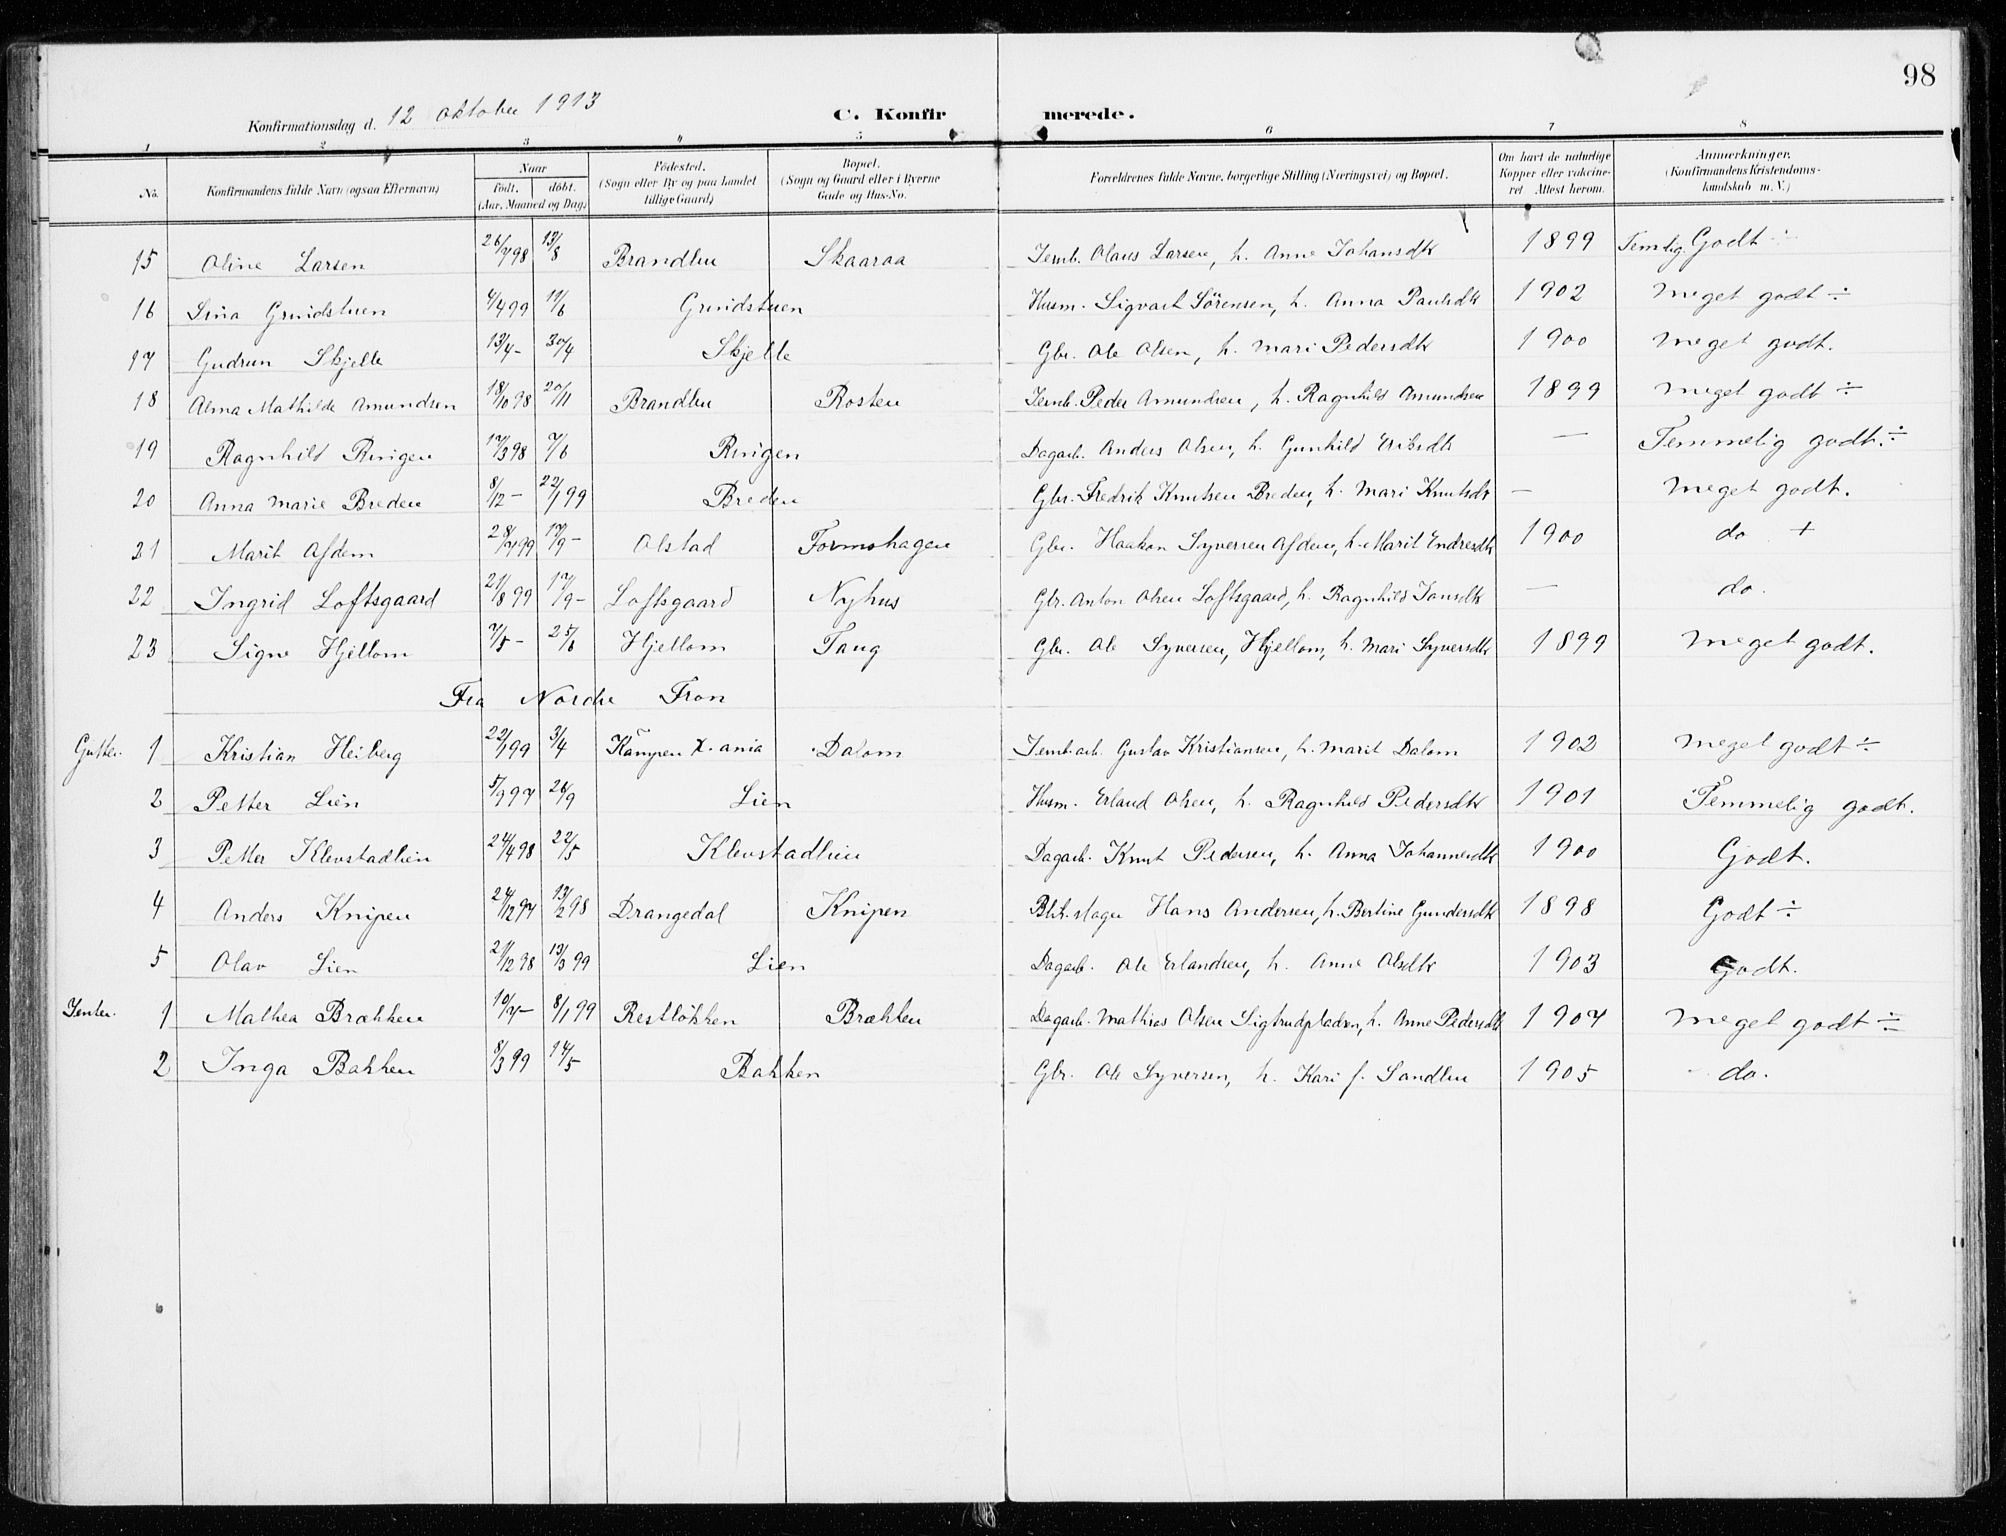 98
Konfirmationsdag d. 12 oktober 1913
C. Konfirmerede.
1 2 3 4 5 6 7 8
No. | Konfirmandens fulde Navn (ogsaa Efternavn) | Naar født. døbt. (Aar, Maaned og Dag) | Fødested. (Sogn eller By og paa Landet tillige Gaard) | Bopæl. (Sogn og Gaard eller i Byerne Gade og Hus-No. | Forældrenes fulde Navne, borgerlige Stilling (Næringsvei) og Bopæl. | Om havt de naturlige Kopper eller vakcineret. Attest herom. | Anmerkninger. (Konfirmandens Kristendomskundskab m. V.)
15 Oline Larsen 26/7 98 13/8 Brandlien Skaaraa Jernb. Olaus Larsen, h. Anne Johansdtr 1899 Temlig. Godt ÷
16 Sina Grindstuen 4/4 99 11/6 Grindstuen Husm. Sigvart Sörensen, h. Anna Paulsdtr 1902 Meget godt ÷
17 Gudrun Skjelle 13/4 - 30/4 Skjelle Gbr. Ole Olsen, h. Mari Pedersdtr 1900 Meget godt.
18 Alma Mathilde Amundsen 18/10 98 20/11 Brandlien Rosten Jernb. Peder Amundsen, h. Ragnhild Amundsen 1899 Meget godt ÷
19 Ragnhild Ringen 17/3 98 7/6 Ringen Dagarb. Anders Olsen, h. Gunhild Eriksdtr — Temmelig godt. ÷
20 Anna Marie Breden 8/12 - 22/1 99 Breden Gbr. Fredrik Knutsen Breden, h. Mari Knutsdtr — Meget godt.
21 Marit Afdem 28/7 99 17/9 - Olstad Formohagen Gbr. Haakon Syversen Afdem, h. Marit Endresdtr 1900 do +
22 Ingrid Loftsgaard 21/8 99 17/9 - Loftsgaard Nyhus Gbr. Anton Olsen Loftsgaard, h. Ragnhild Jonsdtr — do.
23 Signe Hjellom 7/5 - 25/6 Hjellom Taug Gbr. Ole Syversen, Hjellom, h. Mari Syversdtr 1899 Meget godt.
Fra Nordre Fron
Gutter. 1 Kristian Heiberg 22/1 99 3/4 Kampen X.ania Dalom Jernb.arb. Gustav Kristiansen, h. Marit Dalom 1902 Meget godt ÷
2 Petter Lien 5/9 97 26/9 Lien Husm. Erland Olsen, h. Ragnhild Pedersdtr 1901 Temmelig godt.
3 Petter Klevstadlien 24/4 98 22/5 Klevstadlien Dagarb. Knut Pedersen, h. Anna Johannesdtr 1900 Godt.
4 Anders Knipen 27/12 97 13/2 98 Drangedal Knipen Blik.slager Hans Andersen, h. Bertine Gundersdtr 1898 Godt ÷
5 Olav Lien 21/12 98 13/3 99 Lien Dagarb. Ole Erlandsen, h. Anne Olsdtr 1903 Godt.
Jenter. 1 Mathea Brækken 10/7 - 8/1 99 Restløkken Brækken Dagarb. Mathias Olsen Sigtrudpladsen, h. Anne Pedersdtr 1907 Meget godt ÷
2 Inga Bakken 8/3 99 14/5 Bakken Gbr. Ole Syversen, h. Kari f. Sandlien 1905 do.